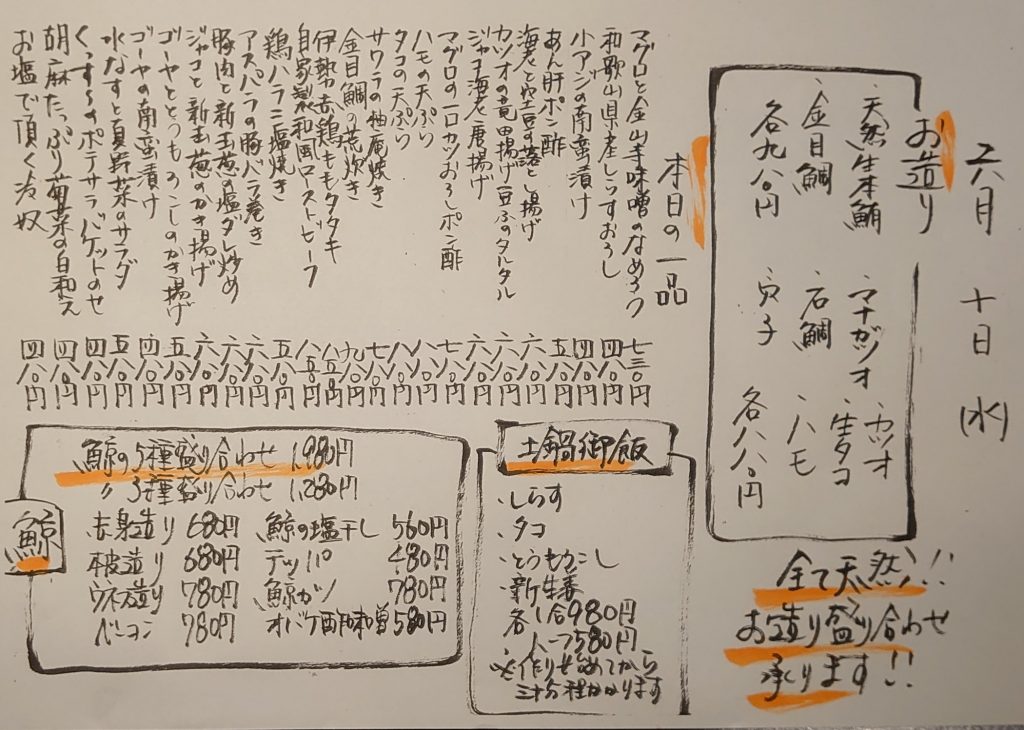 六月 十日 (水)
お造り
・天然生本鮪 ・マナガツオ ・カツオ
・金目鯛 ・石鯛 ・生タコ ・ハモ
各九八〇円 ・穴子 各八八〇円
全て天然!!!
お造り盛り合わせ
承ります!!
本日の一品
マグロと金山寺味噌のなめろう 七三〇円
和歌山県産しらすおろし 四八〇円
小アジの南蛮漬け 四八〇円
あん肝ポン酢 五八〇円
海老と空豆の落とし揚げ 六八〇円
カツオの竜田揚げ豆ふのタルタル 六八〇円
ジャコ海老唐揚げ 六八〇円
マグロの一口カツおろしポン酢 七八〇円
ハモの天ぷら 八八〇円
タコの天ぷら 八八〇円
サワラの柚庵焼き 七八〇円
金目鯛の荒炊き 九八〇円
伊勢赤鶏ももタタキ 八五〇円
自家製和風ローストビーフ 八五〇円
鶏ハラミ塩焼き 五八〇円
アスパラの豚バラ巻き 六八〇円
豚肉と新玉葱の塩ダレ炒め 六八〇円
ジャコと新玉葱のかき揚げ 六八〇円
ゴーヤととうもろこしのかき揚げ 五八〇円
ゴーヤの南蛮漬け 四八〇円
水なすと夏野菜のサラダ 五八〇円
ポテサラバケットのせ 四八〇円
胡麻たっぷり菊菜の白和え 四八〇円
お塩で頂く冷奴 四八〇円
土鍋御飯
・しらす
・タコ
・とうもろこし
・新生姜
各一合980円
ハーフ580円
※作り始めてから
三十分程かかります
鯨
鯨の5種盛り合わせ 1,980円
〃 3種盛り合わせ 1,280円
赤身造り 680円 鯨の塩干し 560円
本皮造り 680円 テッパ 480円
ウネス造り 780円 鯨カツ 780円
ベーコン 780円 オバケ酢味噌 580円